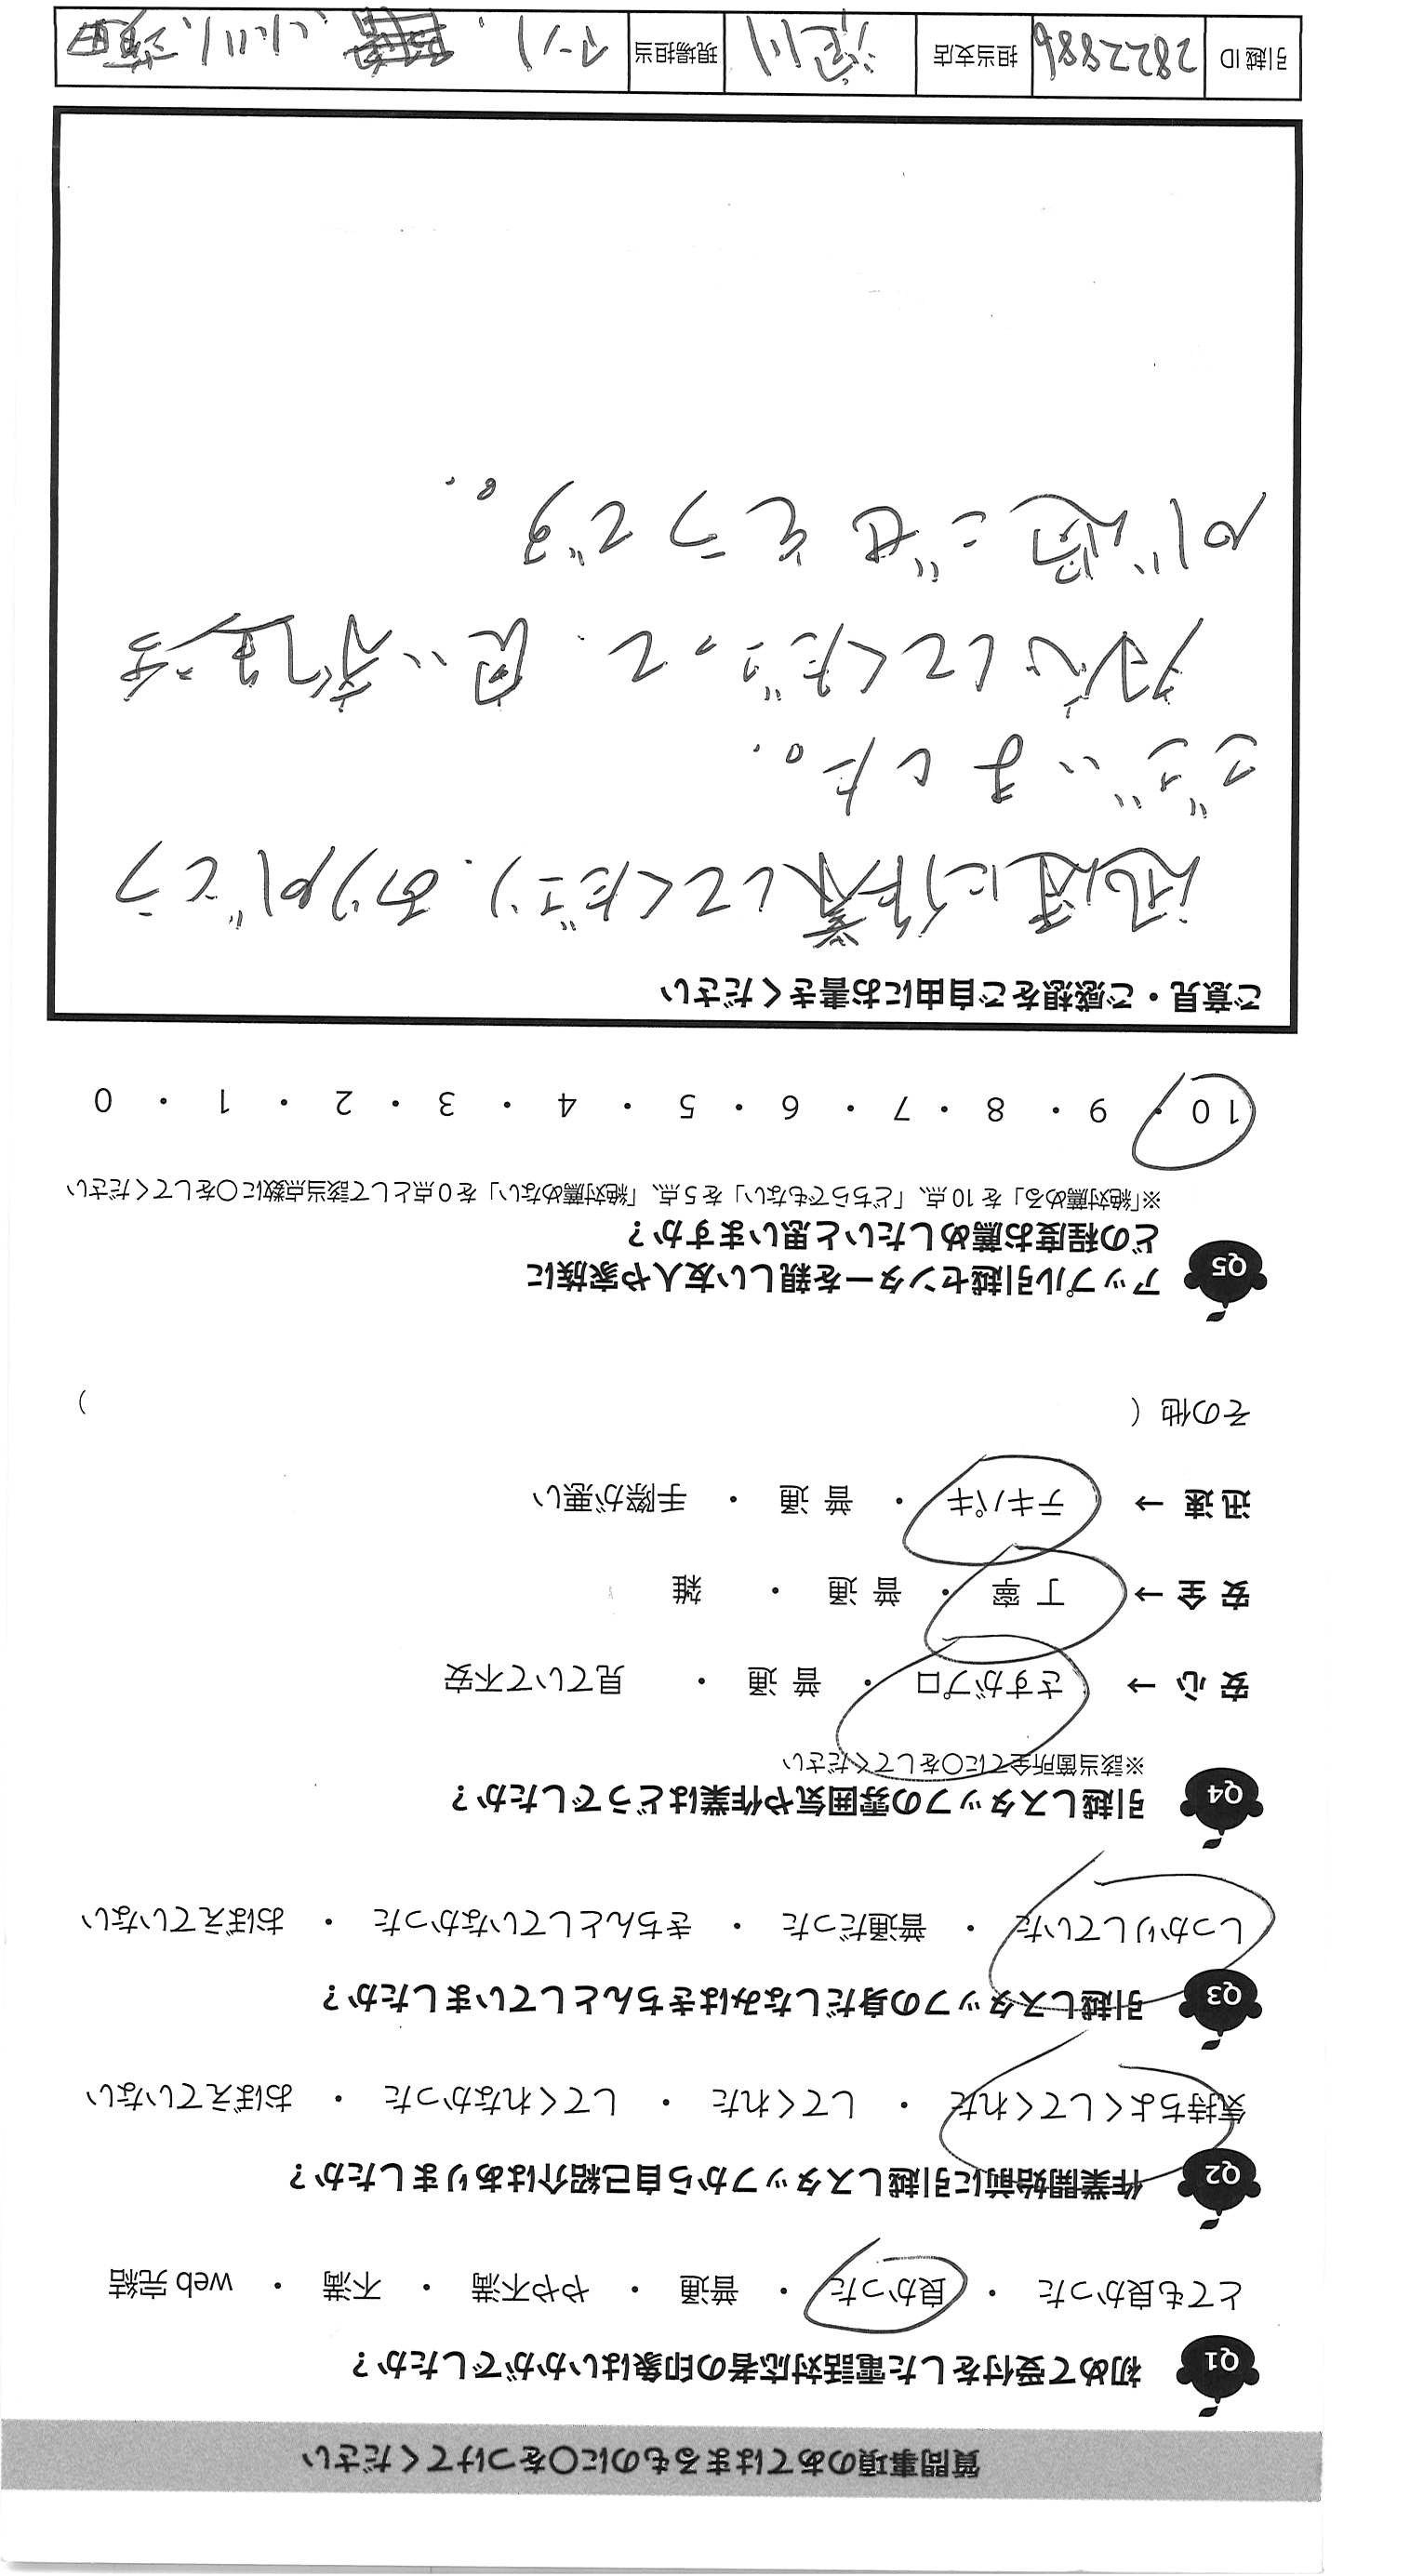 質問事項のあてはまるものに〇をつけてください
Q1 初めて受付をした電話対応者の印象はいかがでしたか？
とても良かった ・ 良かった ・ 普通 ・ やや不満 ・ 不満 ・ web 完結
Q2 作業開始前に引越しスタッフから自己紹介はありましたか？
気持ちよくしてくれた ・ してくれた ・ してくれなかった ・ おぼえていない
Q3 引越しスタッフの身だしなみはきちんとしていましたか？
しっかりしていた ・ 普通だった ・ きちんとしていなかった ・ おぼえていない
Q4 引越しスタッフの雰囲気や作業はどうでしたか？
※該当箇所全てに〇をしてください
安 心 → さすがプロ ・ 普 通 ・ 見ていて不安
安 全 → 丁 寧 ・ 普 通 ・ 雑
迅 速 → テキパキ ・ 普 通 ・ 手際が悪い
その他（ ）
Q5 アップル引越センターを親しい友人や家族に
どの程度お薦めしたいと思いますか？
※「絶対薦める」を 10 点、「どちらでもない」を 5 点、「絶対薦めない」を 0 点として該当点数に〇をしてください
10 ・ 9 ・ 8 ・ 7 ・ 6 ・ 5 ・ 4 ・ 3 ・ 2 ・ 1 ・ 0
ご意見・ご感想をご自由にお書きください
迅速に作業してくださり、ありがとう
ございました。
してくださって、良い新生活
が過ごせそうです。
引越 ID 2822886 担当支店 淀川 現場担当 小川